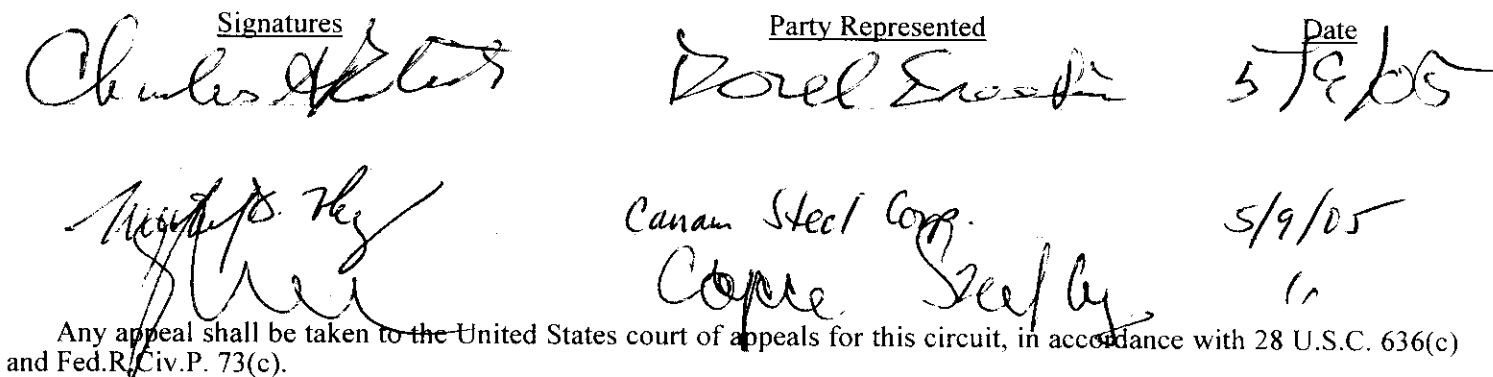 Signatures Party Represented Date
Charles Dorel 5/9/05
Canam Steel Corp. 5/9/05
Steel "
Any appeal shall be taken to the United States court of appeals for this circuit, in accordance with 28 U.S.C. 636(c)
and Fed.R.Civ.P. 73(c).